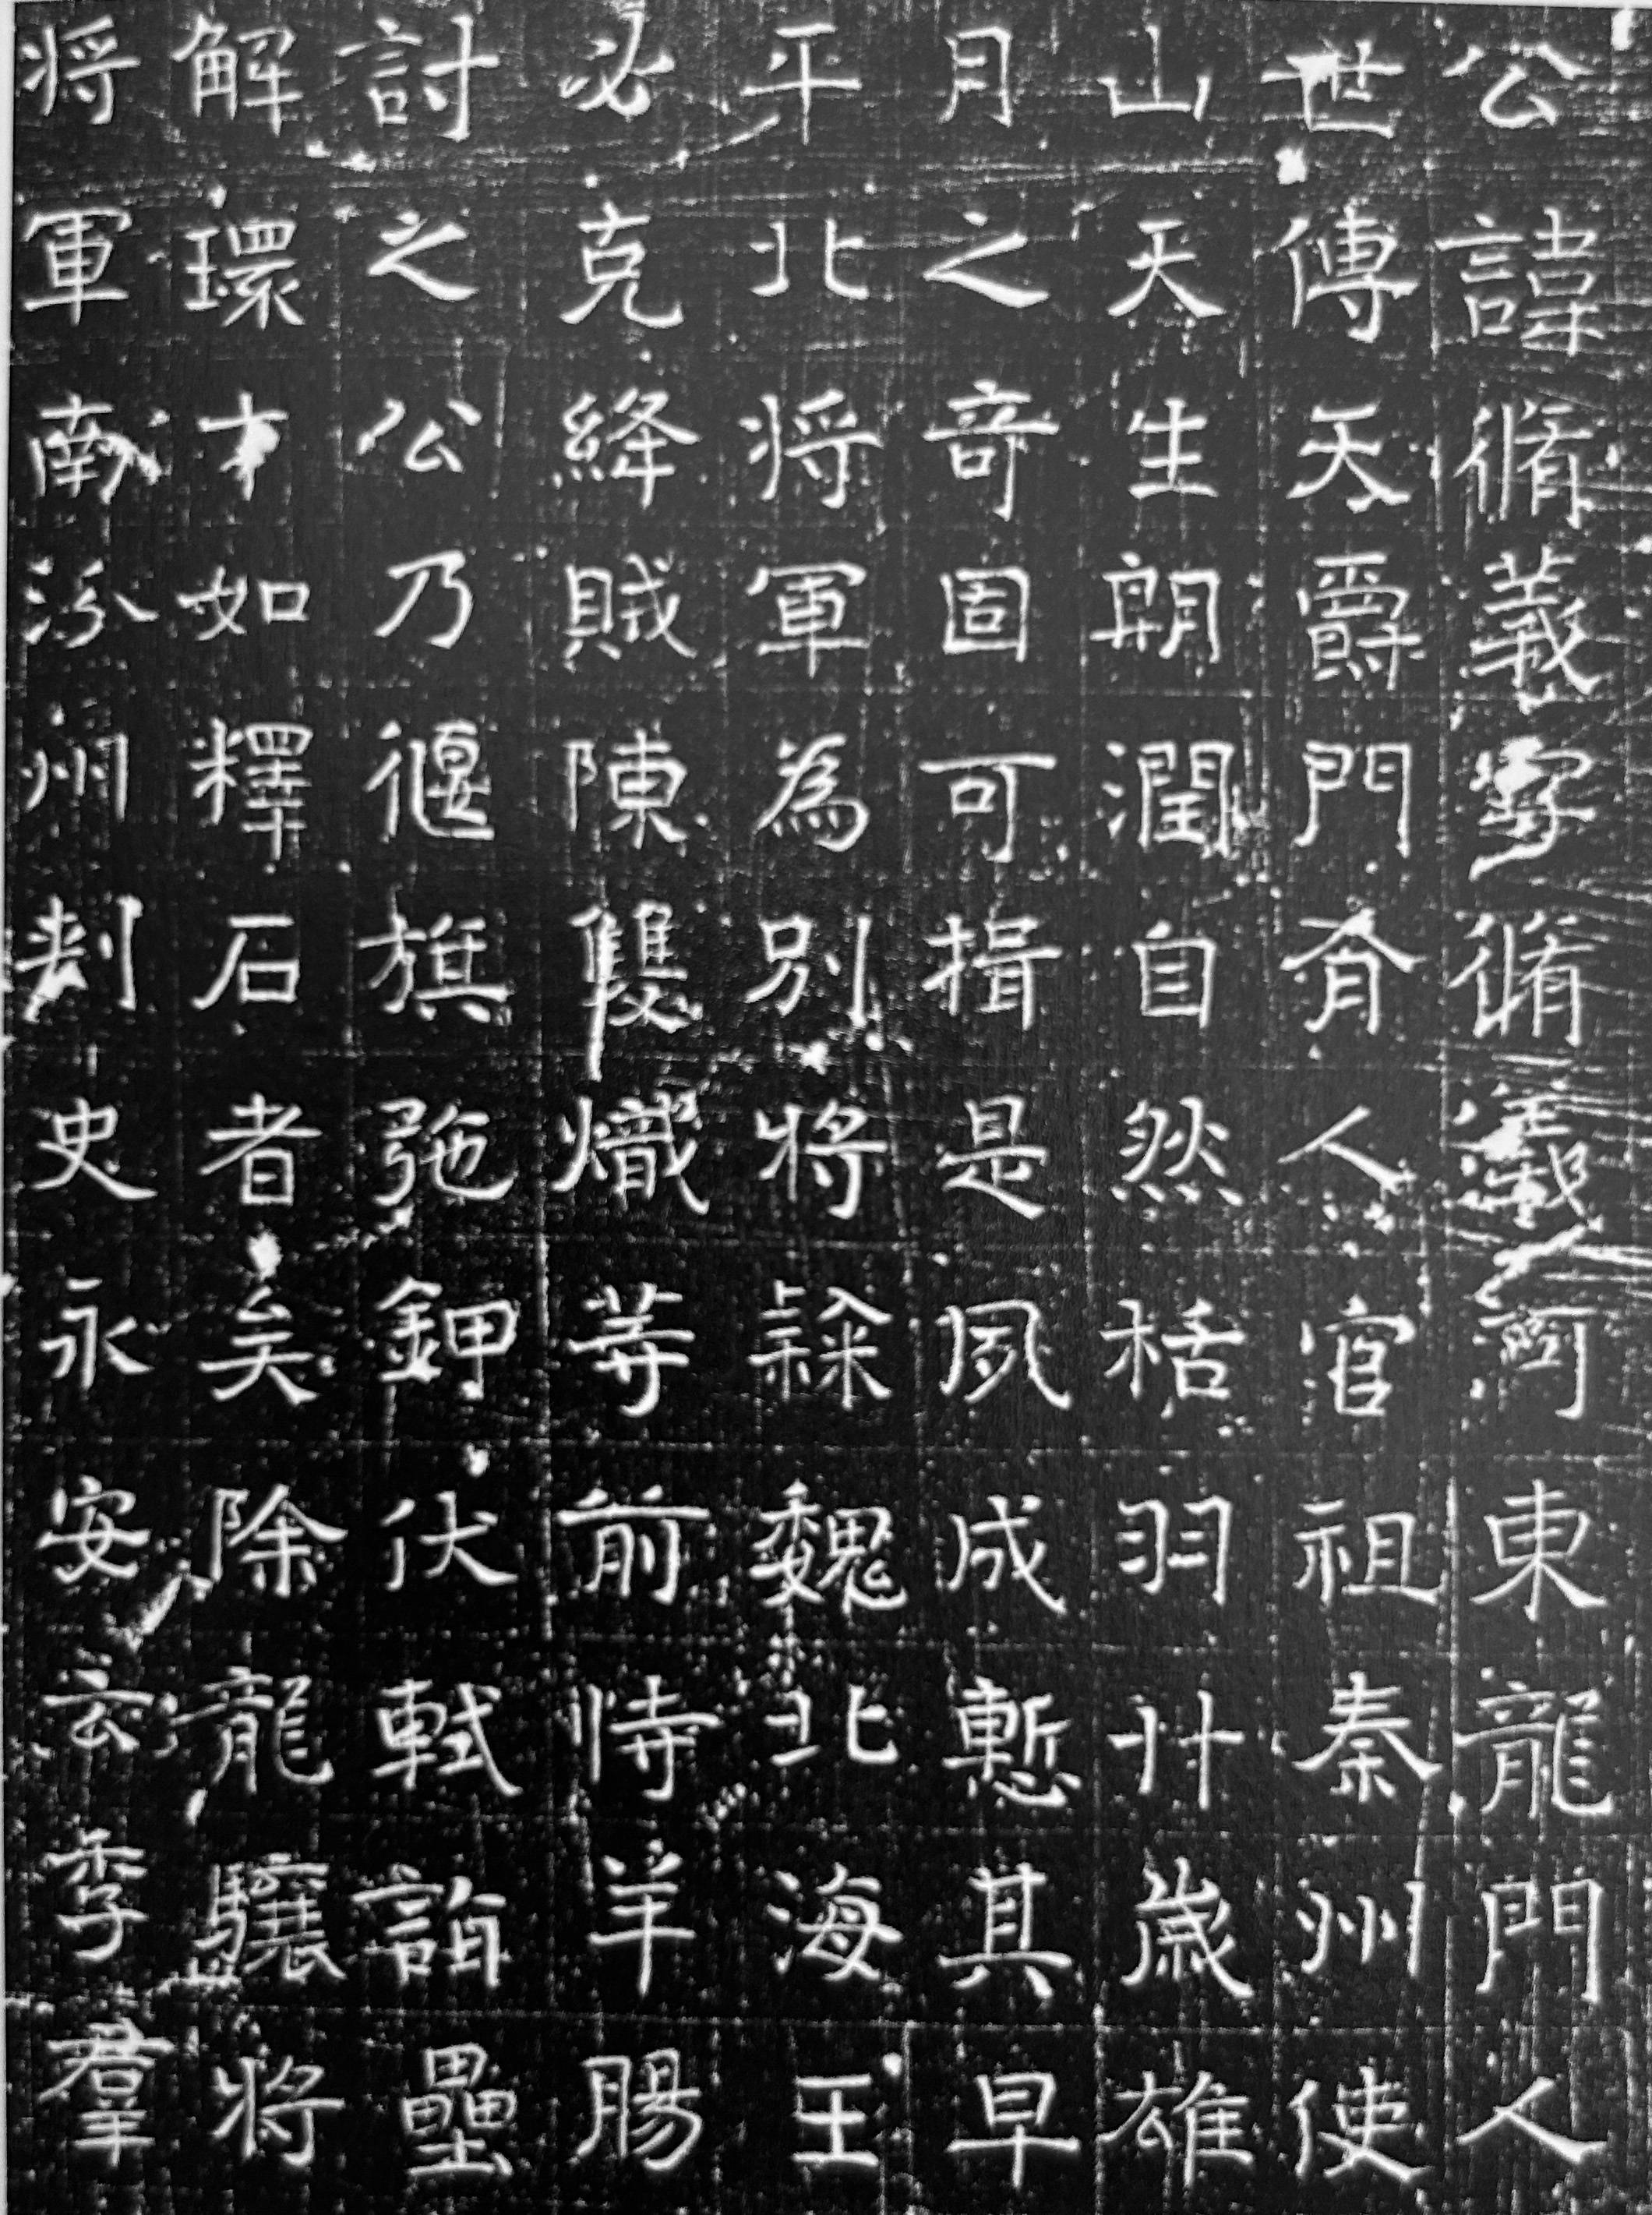 公諱脩義字脩義河東龍門人
世傳天爵門有人官祖秦州使
山天生朝潤自然栝羽廿歲雄
月之奇固可揖是夙成慙其早
平北將軍為別將隸魏北海王
必克絳賊陳雙熾等前恃羊腸
討之公乃偃旗弛鉀伏軾詣壘
解環才如釋石者矣除龍驤將
將軍南汾州刺史永安云季羣